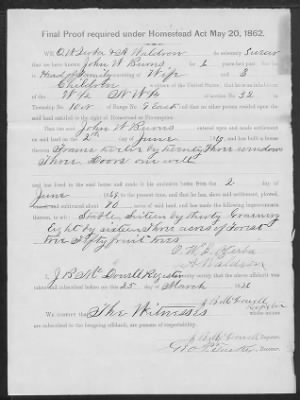 Final Proof required under Homestead Act May 20, 1862.
WE, & A Waldron do solemnly
that we have known John W Burns for 6 years last past; that he is
Head of Family consisting of Wife and 3
Children a citizen of the United States; that he is an inhabitant
of the of section No. 32 in
Township No. 10 N of Range No. 9 East and that no other person resided upon the
said land entitled to the right of Homestead or Pre-emption.
That the said John W Burns entered upon and made settlement
on said land on the 2th day of June, and has built a house thereon
Frame twelve by twenty Three windows
Three Doors one well
and has lived in the said house and made it his exclusive home from the 2 day of
June to the present time, and that he has, since said settlement, plowed,
and cultivated about 70 acres of said land, and has made the following improvements
thereon, to wit: Stable Sixteen by thirty Granary
Eight by sixteen Three acres of Forest
Fifty fruit trees
A Waldron
I, J B McDowell Register do hereby certify that the above affidavit was
subscribed and sworn to before me this 25 day of March
J B McDowell
Register
WE CERTIFY that The Witnesses
whose names are subscribed to the foregoing affidavit, are persons of respectability.
J B McDowell Register.
Receiver.